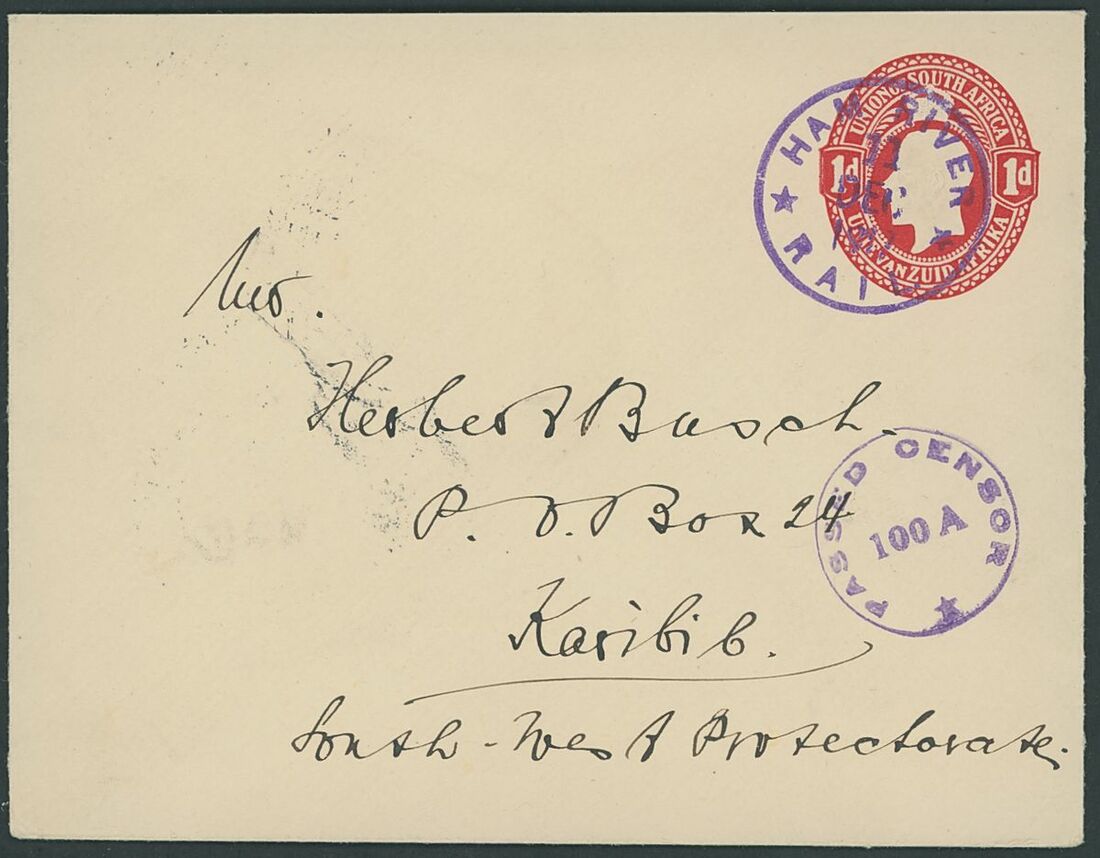 UNION OF SOUTH AFRICA
1d 1d
UNIE VAN ZUID AFRIKA
HAM RIVER
11
DEC
RAIL
Herbert Busch.
P. O. Box 24
Karibib.
South-West Protectorate.
PASSED CENSOR
100 A